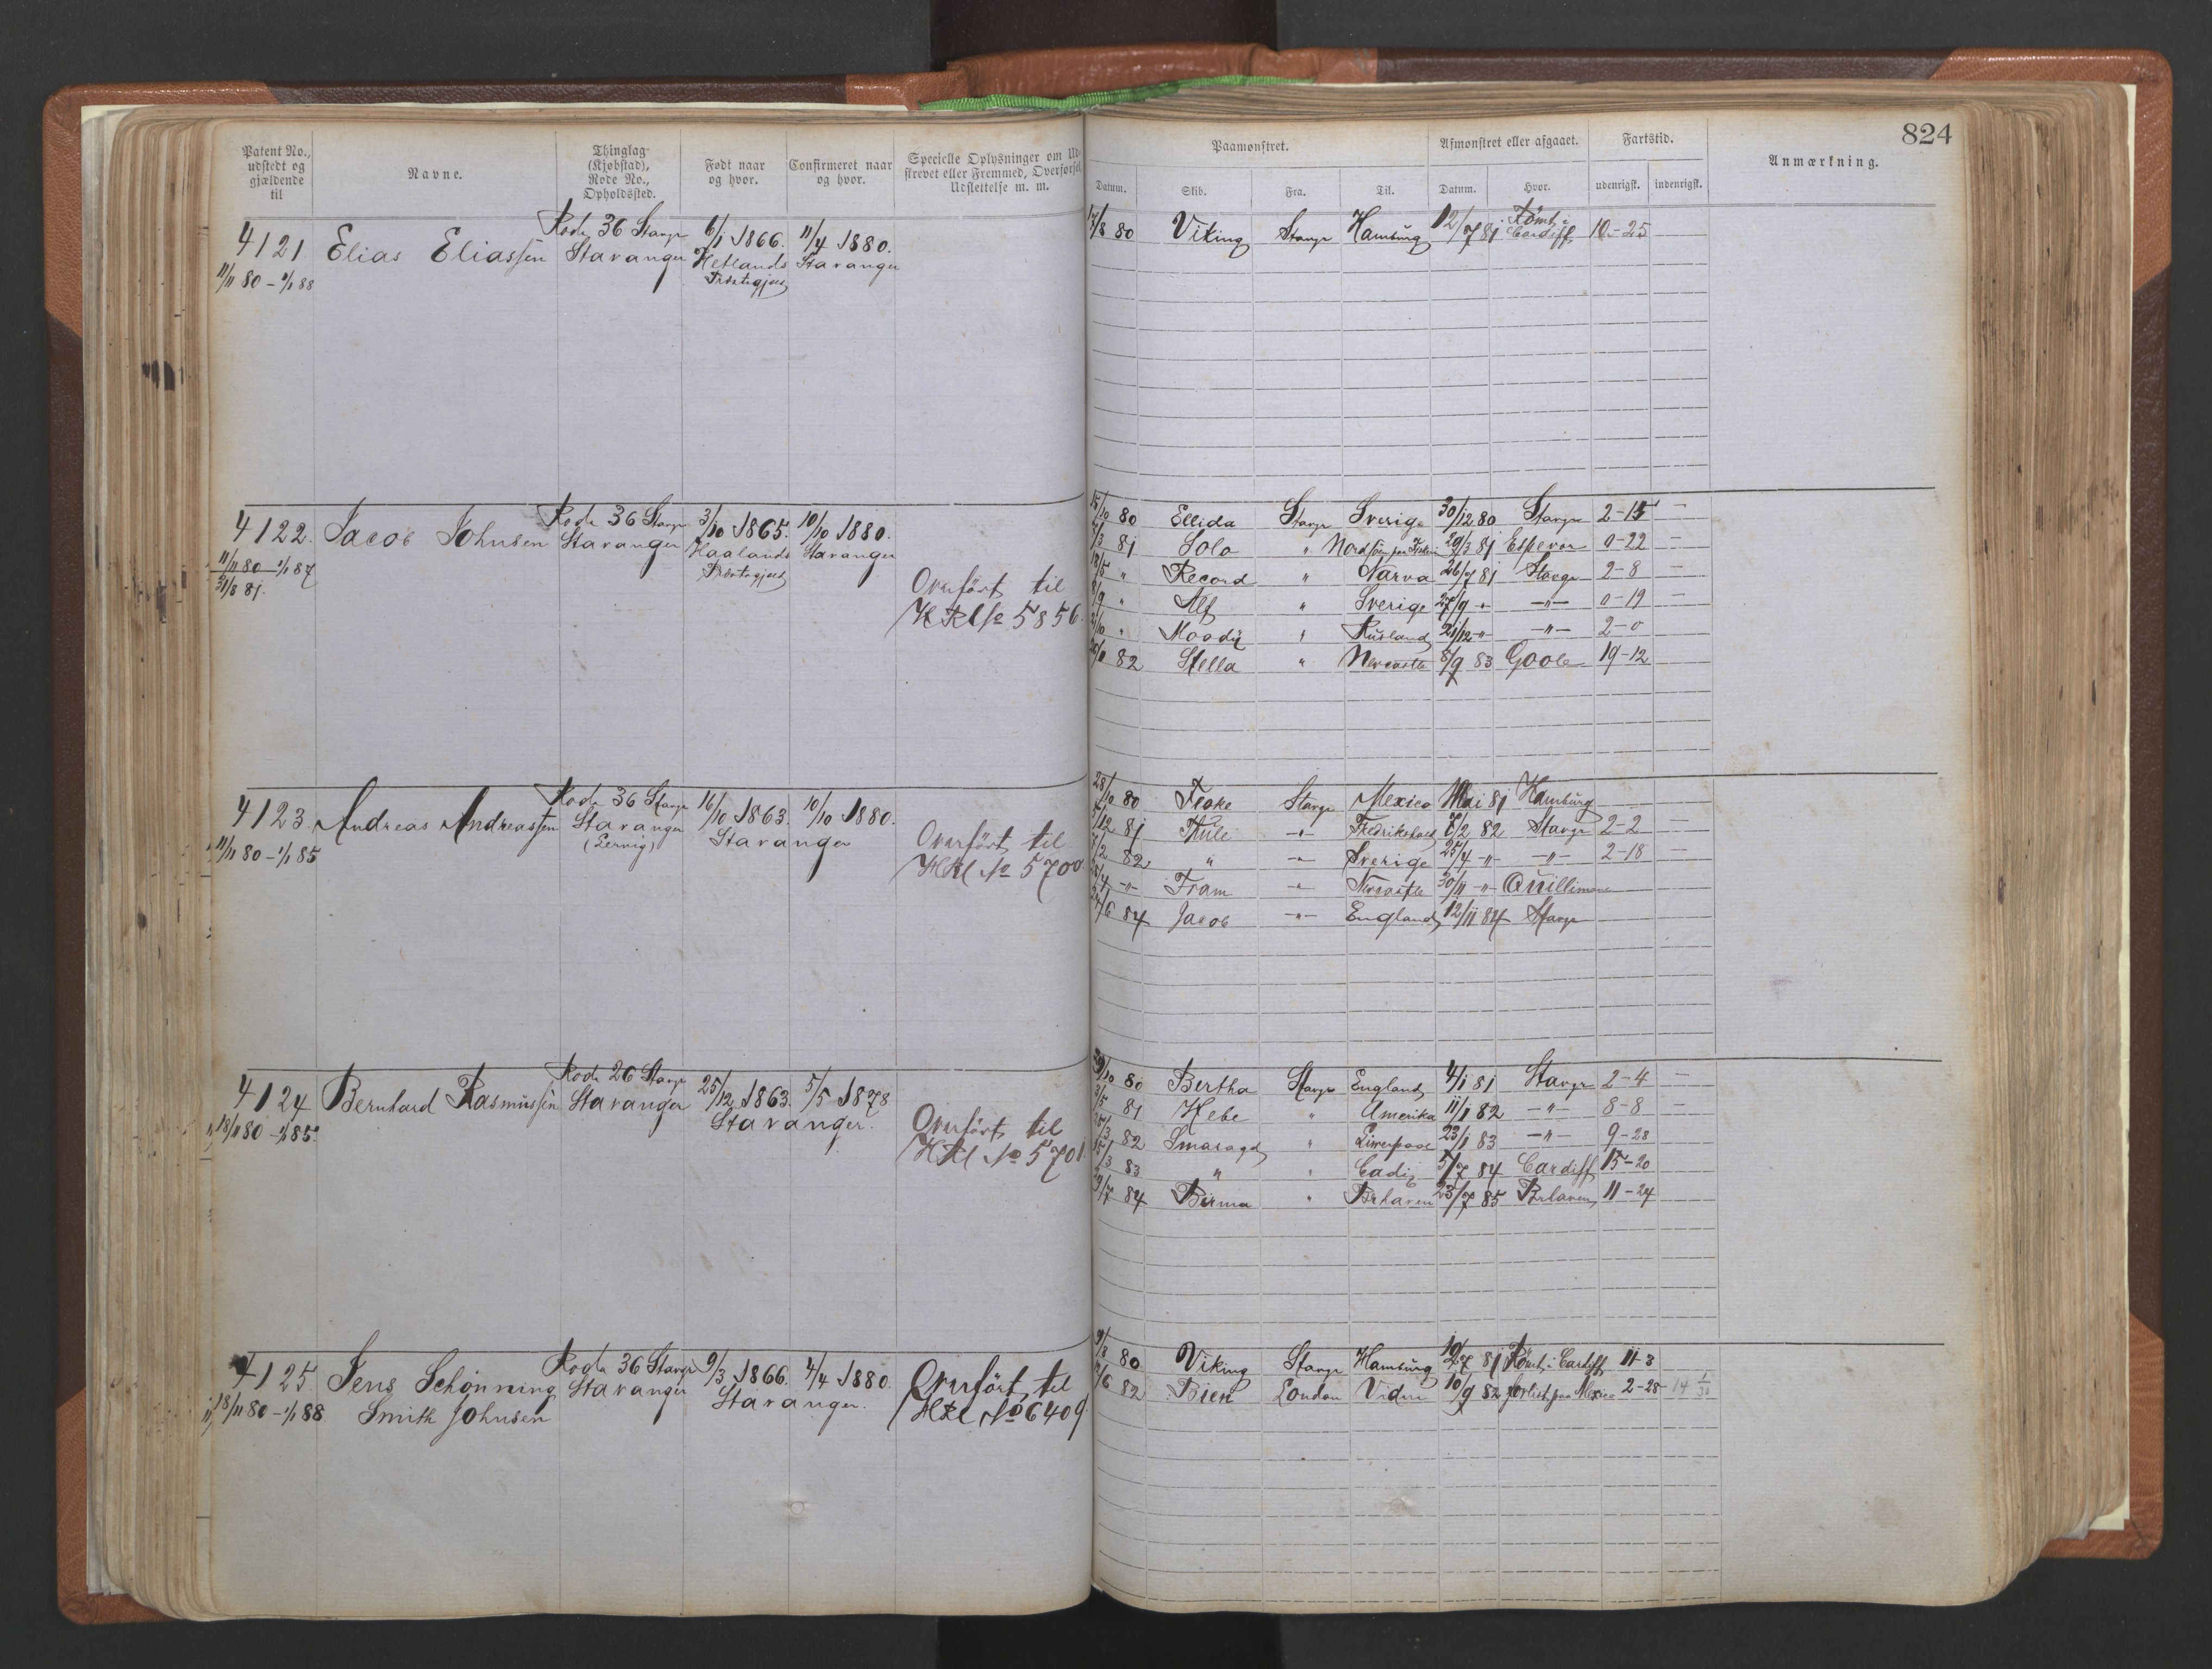 824
Patent No., udstedt og gjældende til
Navne.
Thinglag (Kjøbstad), Rode No., Opholdssted.
Født naar og hvor.
Confirmeret naar og hvor.
Specielle Oplysninger om Ud-
skrevet eller Fremmed, Overførsel,
Udslettelse m. m.
Paamønstret.
Afmønstret eller afgaaet.
Fartstid.
Anmærkning.
Datum. Skib. Fra. Til. Datum. Hvor. udenrigsk. indenrigsk.
4121 Elias Eliassen Rode 36 Stavgr 6/1 1866. 11/4 1880.
Stavanger Hetlands Stavanger
11/11 80 - 1/1 88 Præstegjeld
80 Viking Stavgr Hamburg 12/7 81 Römt i Cardiff 10-25
4122. Jacob Johnsen Rode 36 Stavgr 3/10 1865. 10/10 1880.
Stavanger Haalands Stavanger
11/11 80 - 1/1 87 Præstegjeld
31/8 81.
Overført til
HRl No 5856.
15/10 80 Ellida Stavgr Sverige 30/12 80 Stavgr 2-15 -
81 Solo " Nordsöen paa Fiskeri 29/3 81 Espevær 0-22 -
18/5 " Record " Narva 26/7 81 Stavgr 2-8 -
" Alf " Sverige 27/9 -"- -"- 0-19 -
" Moody " Rusland 21/12 -"- -"- 2-0
82 Stella " Newcastle 8/9 83 Goole 19-12
4123. Andreas Andreassen Rode 36 Stavgr 16/10 1863. 10/10 1880.
Stavanger Stavanger
11/11 80 - 1/1 85 (Lervig)
Overført til
HRl No 5700
28/10 80 Stavgr Mexico Mai 81 Hamburg
5/12 81 Thule -"- Fredrikshald 7/2 82 Stavgr 2-2 -
7/2 82 " -"- Sverige 25/4 -"- -"- 2-18 -
-"- Fram -"- Newcastle 30/11 -"- Quillimane
84 Jacob -"- England 12/11 84 Stavgr
4124 Bernhard Rasmussen Rode 26 Stavgr 25/12 1863. 5/5 1878
Stavanger Stavanger.
18/11 80 - 1/1 85.
Overført til
HRl No 5701.
80 Bertha Stavgr England 4/1 81 Stavgr 2-4 -
81 Hebe " Amerika 11/1 82 -"- 8-8 -
82 Smaragd " Liverpool 23/1 83 -"- 9-28
83 " " Cadiz 5/7 84 Cardiff 15-20
84 Birma " Brhaven 23/7 85 Brhaven 11-24
4125 Jens Schønning Rode 36 Stavgr 9/3 1866. 4/4 1880.
Smith Johnsen Stavanger Stavanger.
18/11 80 - 1/1 88
Overført til
HRl No 6409.
80 Viking Stavgr Hamburg 81 Römt i Cardiff 11-3
82 Bien London Vidre 10/9 82 forlist paa Mexico 2-28